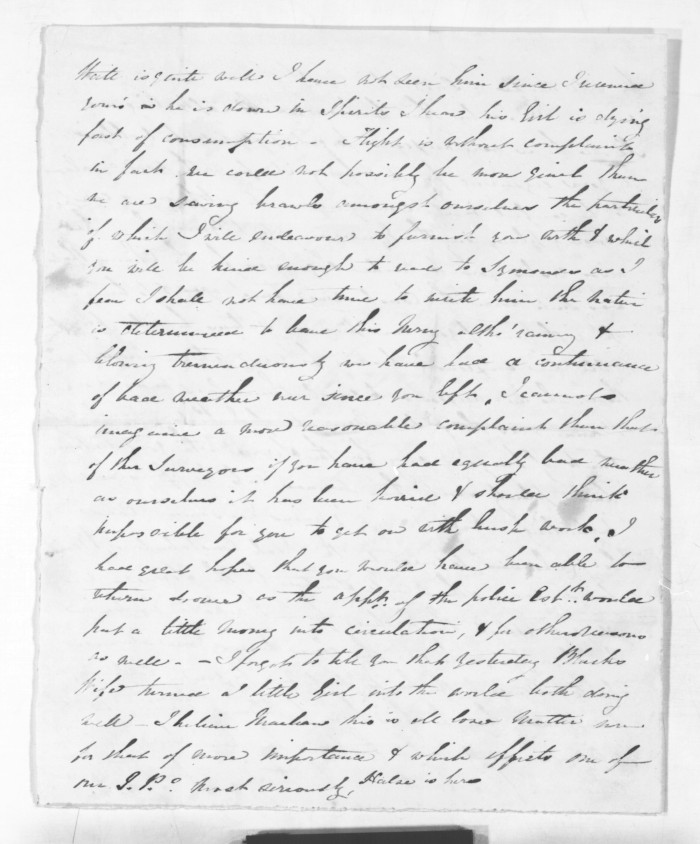 State is quite well I have not seen him since I received
yours is he is down in Spirits I hear his Girl is dying
fast of consumption - Flight is without complaint
in fact we could not possibly be more quiet than
we are saving brawls amongst ourselves the particulars
of which I will endeavour to furnish you with & which
you will be kind enough to read to Symonds as I
fear I shall not have time to write him the Native
is determined to leave this Mong altho' rainy &
blowing tremendously we have had a continuance
of bad weather ever since you left, I cannot
imagine a more reasonable complaint than that
of the Surveyors if you have had equally bad weather
as ourselves it has been horrid & should think
impossible for you to get on with bush work, I
had great hopes that you would have been able to
return sooner as the appt. of the police Estt. would
put a little money into circulation, & for other reasons
as well - - I forgot to tell you that yesterday Blacks
Wife turned a little Girl into the world both doing
well - I believe this is all love Matter now
for that of more importance & which affects one of
our J.P.s most seriously, Halse is here